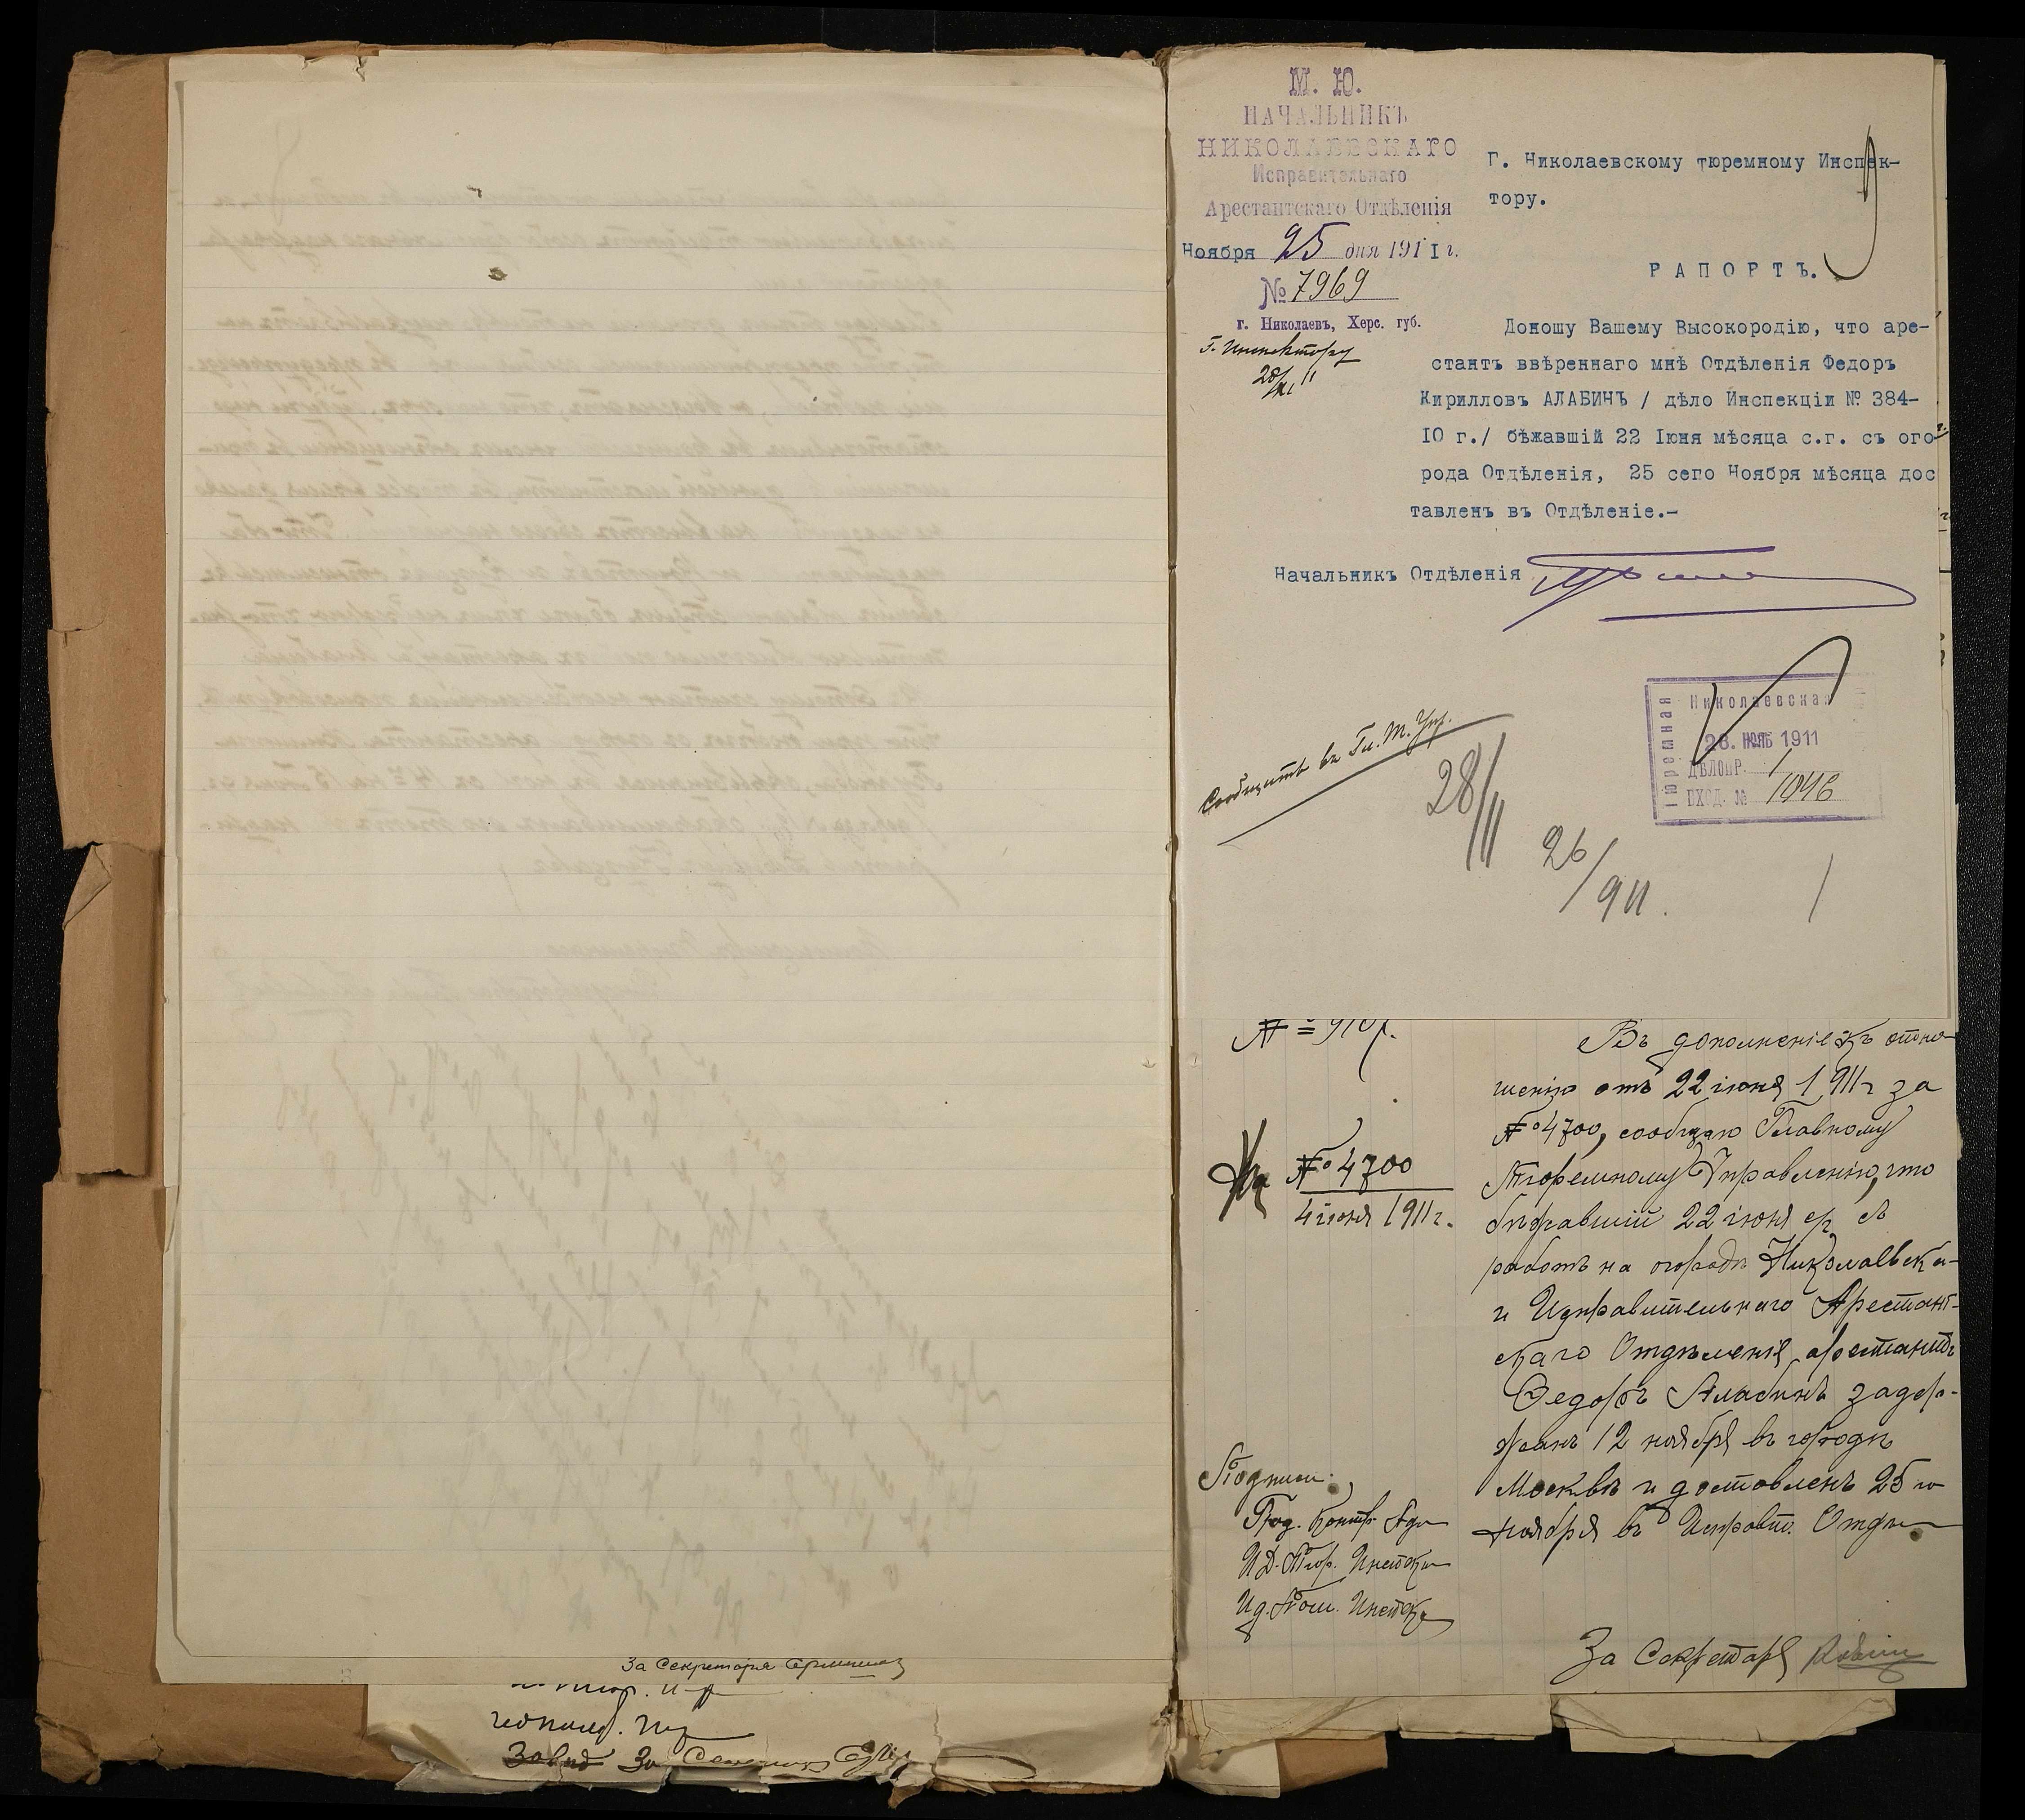 М. Ю.
НАЧАЛЬНИКЪ
НИКОЛАЕВСКАГО
Исправительнаго
Арестантскаго Отдѣленія
Ноября 25 дня 1911 г.
№ 7969
г. Николаевъ, Херс. губ.
Г. Инспектору
28/XI 11
Г. Николаевскому тюремному Инспек-
тору.
РАПОРТЪ.
Доношу Вашему Высокородію, что аре-
стантъ ввѣреннаго мнѣ Отдѣленія Федоръ
Кирилловъ АЛАБИНЪ / дѣло Инспекціи № 384-
10 г./ бѣжавшій 22 Іюня мѣсяца с.г. съ ого
рода Отдѣленія, 25 сего Ноября мѣсяца дос
тавленъ въ Отдѣленіе.-
Начальникъ Отдѣленія
Сообщить въ Гл. Т. Упр.
28/11
26/911.
Николаевская
Тюремная
28. НОЯБ 1911
ДѢЛОПР. 1
ВХОД. № 1046
Въ дополненіе къ отно-
шенію отъ 22 іюня 1911 г за
№ 4700, сообщаю Главному
Тюремному Управленію, что
бѣжавшій 22 іюня с.г. съ
работъ на огородѣ Николаевска-
г Исправительнаго Арестант-
скаго Отдѣленія арестантъ
Федоръ Алабинъ задер-
жанъ 12 ноября въ городѣ
Москвѣ и доставленъ 25 го
ноября въ Исправит. Отдѣ
На № 4700
4 іюня 1911 г.
Подписи:
Под. Контр. Адм
И.Д. Тюр. Инспек
И.д. Пом. Инспек
За Секретаря
За Секретаря
За